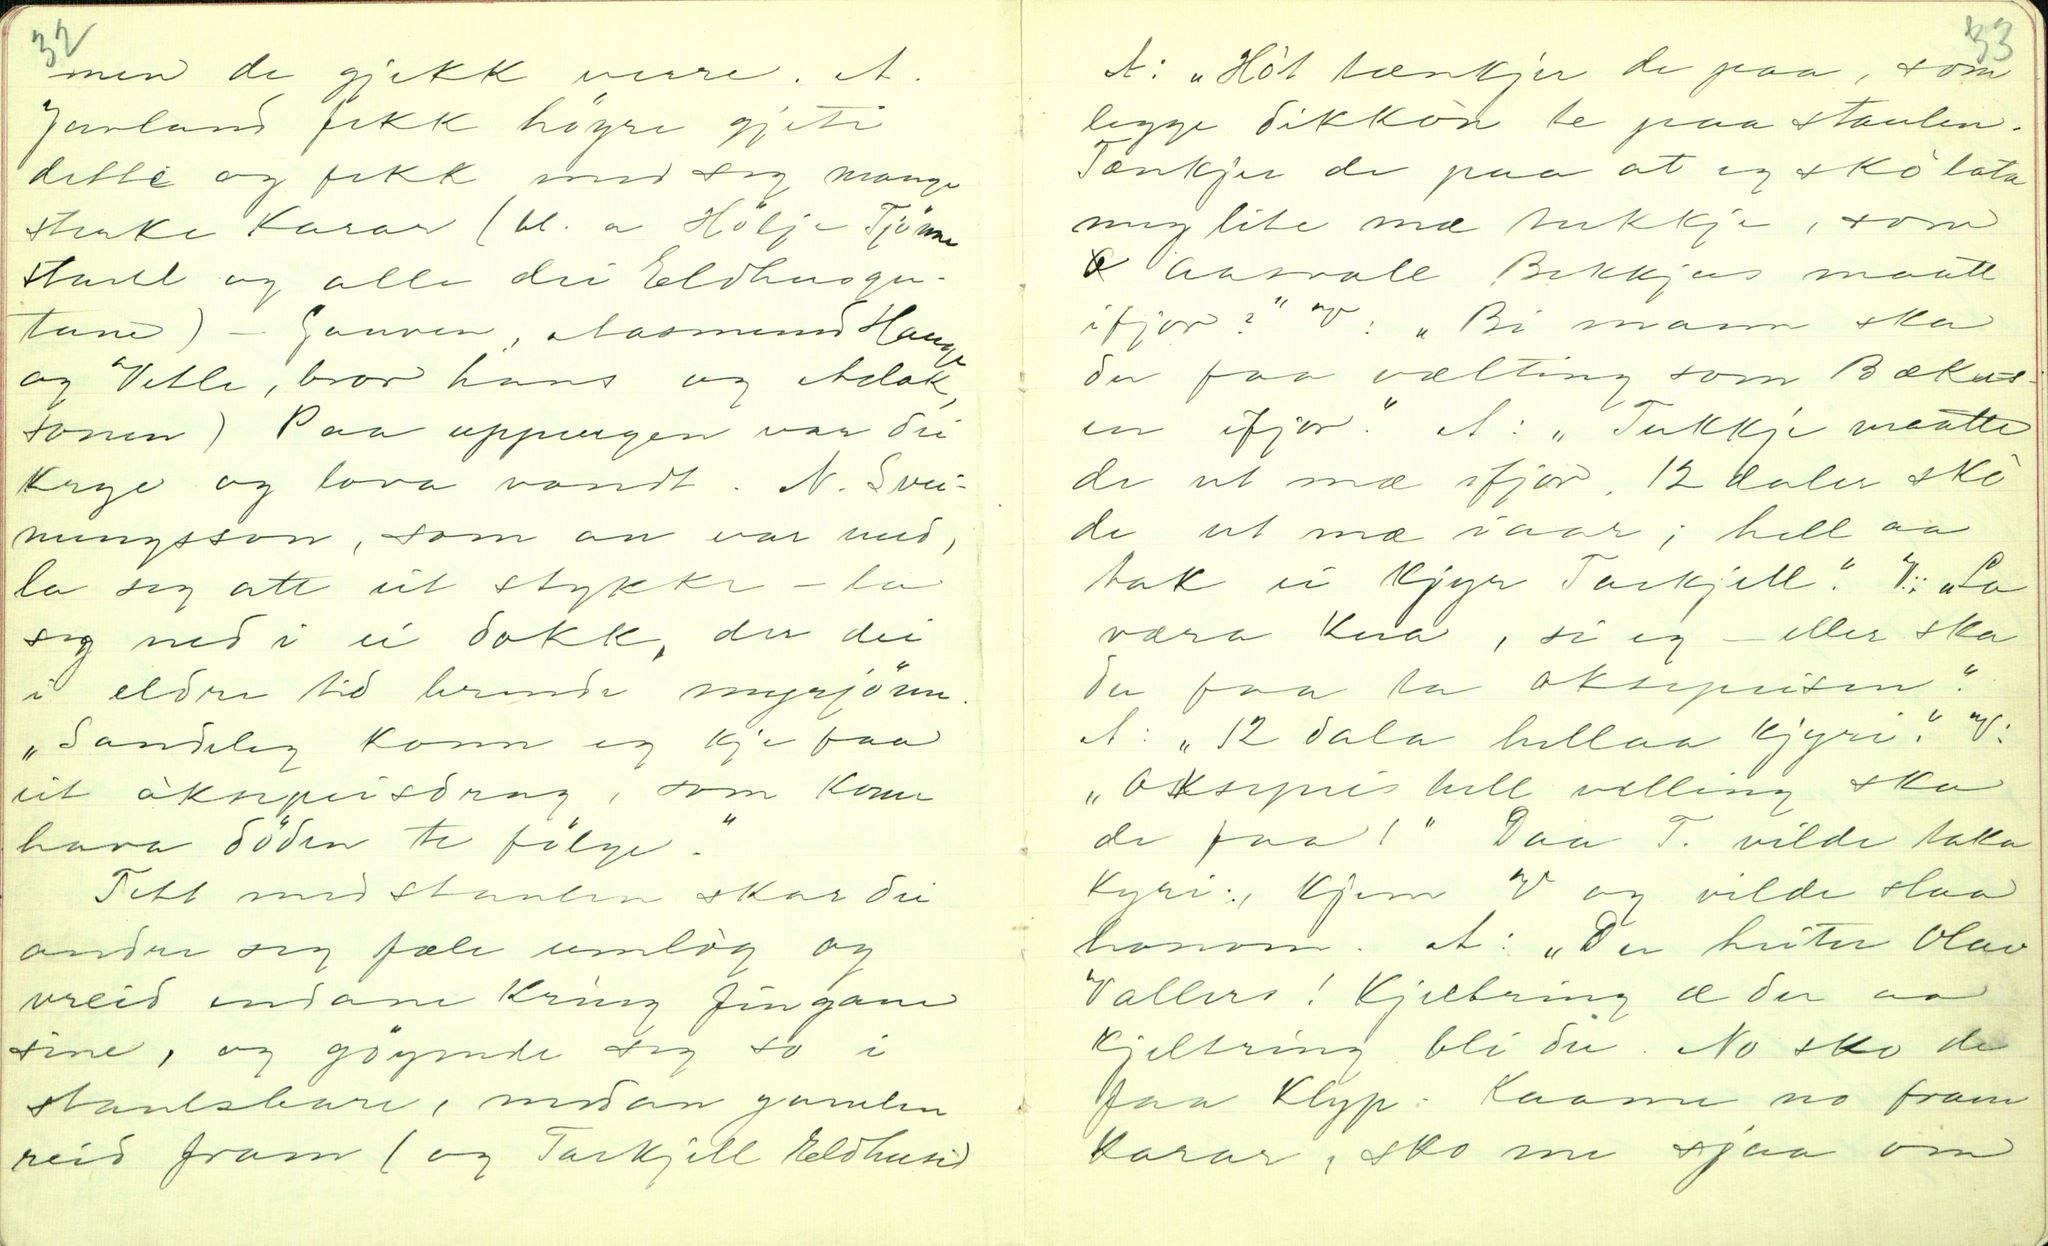 32
men de gjekk verre. A.
Jarland fekk høgre gjeti
dette og fekk med seg mange
sterke karar (bl. a Hölje Tjönn
staul og alle dei Eldhusgu-
tane) – Gauven, Aasmund Hauge
og Vetle, bror hans og Aslak,
sonen) Paa uppvegen var dei
krye og lova vondt. N. Svei-
nungsson, som an var med,
la seg att eit stykke – la
seg ned i ei dokk, der dei
i eldre tid brende myrjönn.
„Sandeleg konn eg kje faa
eit òksepeisdrag, som konn
hava döden te fölgje."
Tett med staulen skar dei
andre seg fæle umlòg og
vreid endane kring fingane
sine, og göymde seg so i
staulsbare, medan gamlen
reid fram (og Tarkjell Eldhusid
33
A: „Höt tænkjer de paa, som
legge dikkòn te paa staulen.
Tænkjer de paa at eg skò lata
meg lite mæ tukkje, som
Aasvall Bekkjus maatt
ifjor?" V: „Bi mann ska
du faa vælting som Bækus-
en ifjor." A: „Tukkje maatte
de ut mæ ifjor, 12 daler skò
de ut mæ iaar; hell aa
tak ei kjyr Tarkjell." V: „La
væra kua, si eg – eller ska
du faa ta oksepeisen".
A: „12 dala hellaa kjyri." V:
„Oksepeis hell velling ska
de faa!" Daa T. vilde taka
kyri:, kjem V og vilde slaa
honom. A: „Du heiter Olav
Vallers! Kjeltring æ du aa
kjeltring bli du. No sko de
faa klyp. Kaame no fram
karar, sko me sjaa om